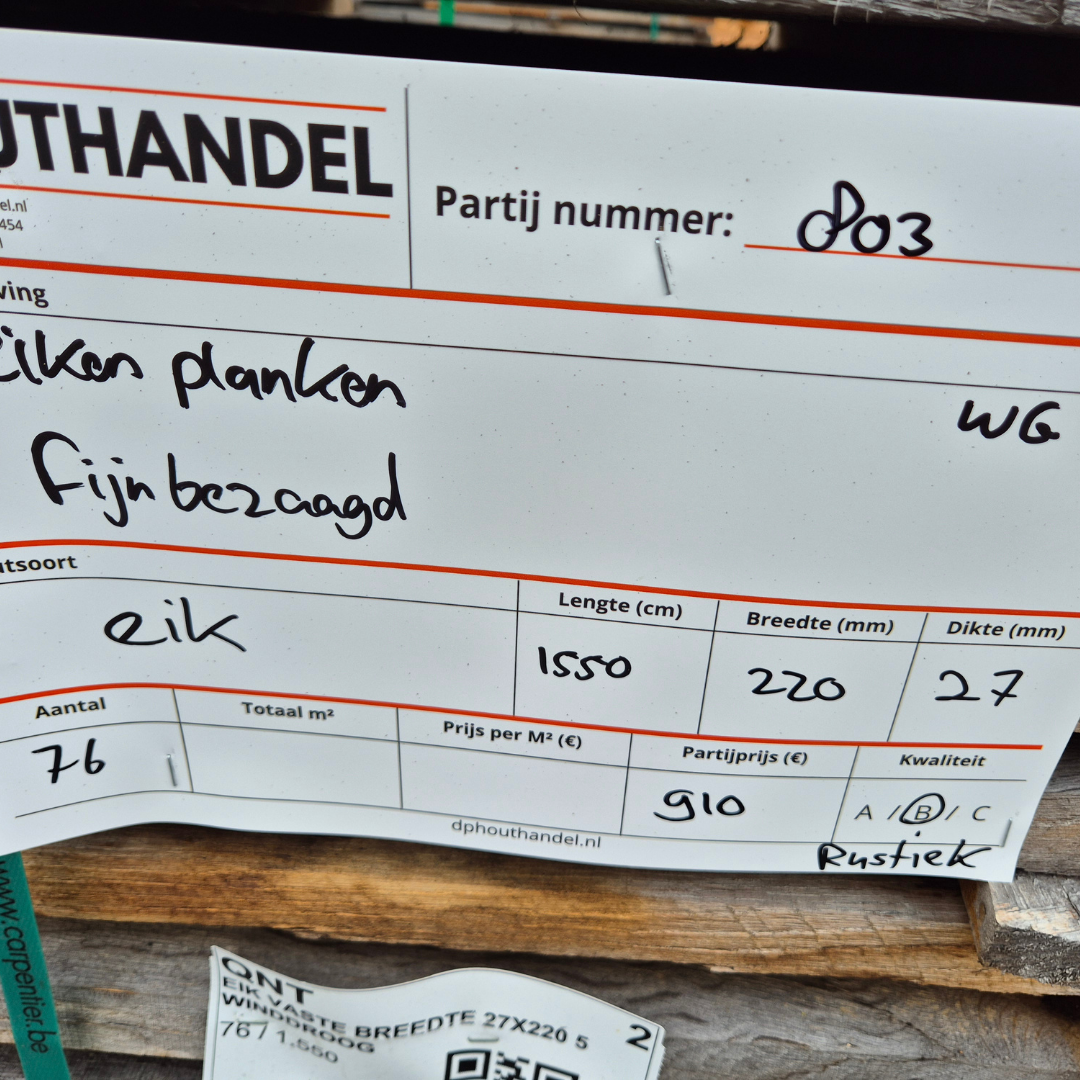 UTHANDEL
el.nl
454
Partij nummer: 803
ving
Eiken planken
WG
fijnbezaagd
utsoort
eik
Lengte (cm)
1550
Breedte (mm)
220
Dikte (mm)
27
Aantal
76
Totaal m²
Prijs per M² (€)
Partijprijs (€)
910
Kwaliteit
A / B / C
Rustiek
dphouthandel.nl
www.carpentier.be
QNT
EIK VASTE BREEDTE 27X220 5
WINDDROOG
76 / 1.550
2